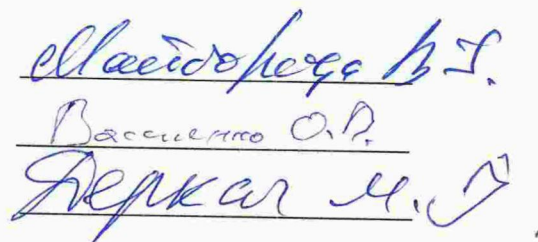 Майборода В Г.
Василенко О.П.
Деркач М.